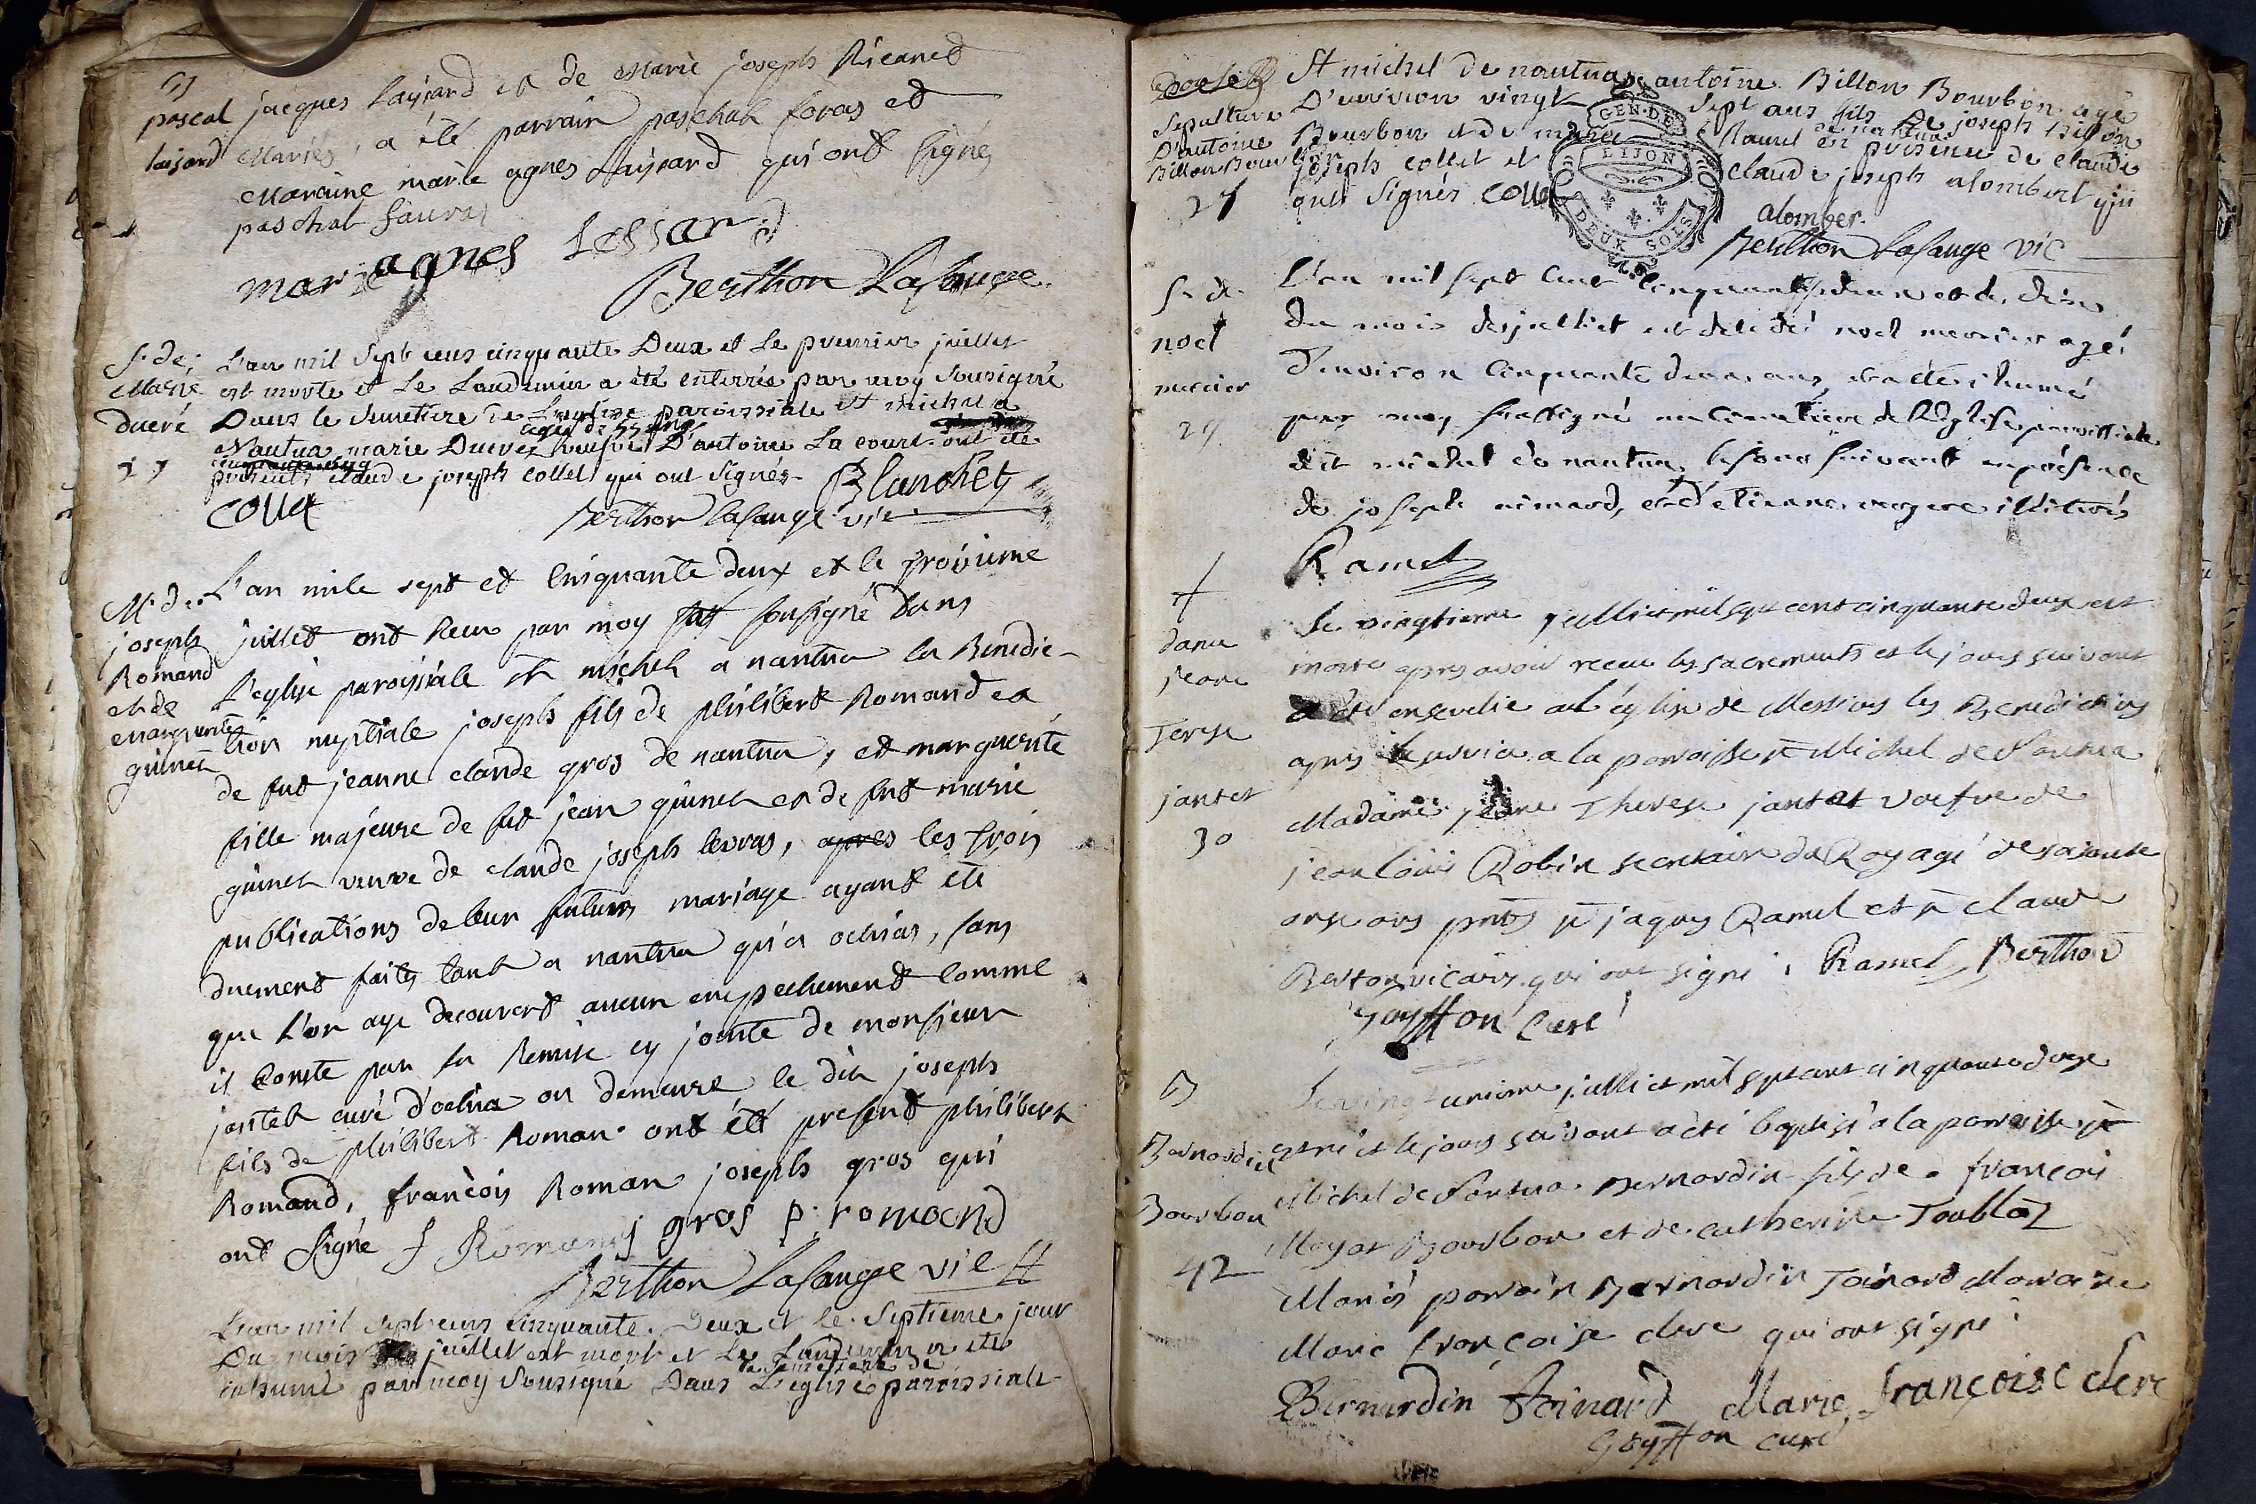 B
pascal
laijard
jacques Laijard et de Marie joseph Ricaned
Mariés, a été parrain paschal foras et
Maraine marie agnes Laijard qui ont signés
paschal fauras
mariagnes Lessard
Berthon Lasauge.
S. de;
Marie
Ducré
27
L'an mil Sept cens cinquante Deux et Le premier juillet
est morte et Le Landemain a été enterrée par moy Sousigné
Dans le Semetiere de L'eglise paroissiale St michel a
agée de 55 ans
Nantua marie Ducrez veufve D'antoine La court. ont été
presents claude joseph collet qui ont signés Blanchet
collet
Berthon lasauge vic
M. de.
joseph
Romand
et de
marguerite
guinet
L'an mile sept et Cinquante deux et le troisieme
juillet ont Receu par moy sousigné dans
l'eglise paroissiale St michel a nantua la Benedic-
tion nuptiale joseph fils de philibert Romand et
de fut jeanne claude gros de nantua, et marguerite
fille majeure de fut jean guinet et de fut marie
guinet veuve de claude joseph levras, apres les trois
publications de leur futurs mariage ayant été
duement faits tant a nantua qu'a ochias, sans
que L'on aye decouvert aucun empechement comme
il Conste par la Remise cy jointe de monsieur
jantet curé d'ochia ou demeure le dit joseph
fils de philibert Roman. ont été present philibert
Romand, françois Roman joseph gros qui
ont signé f Romand j gros p. romand
Berthon Lasauge vic
L'an mil Sept cens cinquante. Deux et le. Septieme jour
Du mois juillet est mort et Le Landemain a eté
le semetiere de
inhumé par moy Sousigné Dans L'eglise paroissiale
Sepulture
D'antoine
Billon Bourbon
28
St michel de nantua antoine Billon Bourbon agé
D'environ vingt Sept ans fils De joseph Billon
de nantua
Bourbon et de marie Ramel en presence de claude
joseph collet et claude joseph alombert qui
ont Signés Collet
alomber.
Berthon Lasauge vic
GEN. DE
DIJON
DEUX SOLS
S. de
noel
mercier
29
L'an mil sept cent cinquante deux et le dix
du mois de juilliet est decedé noel mercier agé
d'environ cinquante deux ans, et a été inhumé
par moy soussigné au cimetiere de l'Eglise paroissiale
de st michel de nantua le jour suivant en présence
de joseph aimard, et d'etienne mergere illiterés
Ramel
dame
jeane
Terese
jantet
30
Le vingtieme juilliet mil sept cent cinquante deux est
morte apres avoir receu les sacrements et le jour suivant
a été ensevelie a l'eglise de Messieurs les Benedictins
apres le service a la parroisse st Michel de Nantua
Madame jeane Therese jantet voefve de
jean louis Robin secretaire du Roy agé de soixante
onze ans pnts sr jaques Ramel et sr claude
Berton vicaires qui ont signé. Ramel Berthon
Goyffon Curé
B
Bernardin
Bourbon
42
Le vingt unieme juilliet mil sept cent cinquante deux
est né et le jour suivant a été baptisé a la parroisse st
Michel de Nantua. Bernardin fils de françois
Mayot Bourbon et de catherine Toublaz
Mariés parrain Bernardin Joinard Marraine
Marie françoise clere qui ont signé
Bernardin Joinard Marie françoise clere
Goyffon curé